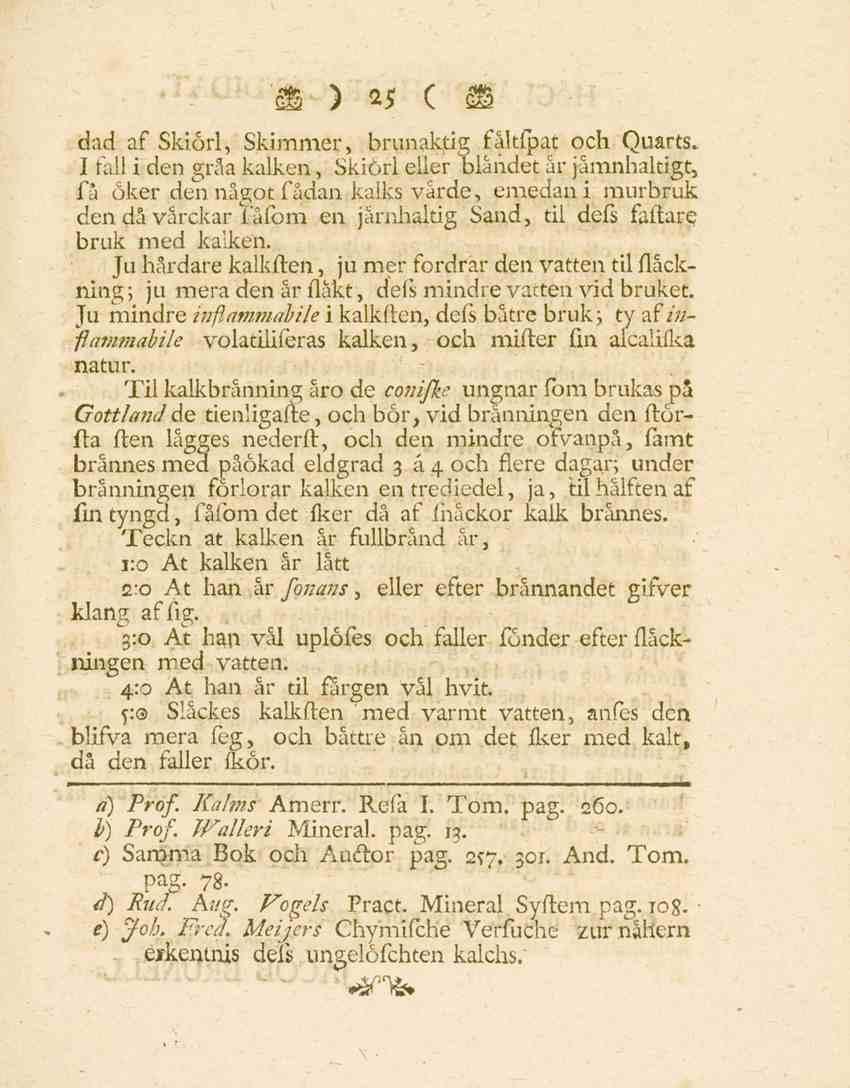 ) 25 (
dad af Skiörl, Skimmer, brunaktig fältſpat och Quarts.
I fall i den gråa kalken, Skiörl eller blandet är jämnhaltigt,
ſå öker den något ſådan kalks värde, emedan i murbruk
den då värckar ſåſom en järnhaltig Sand, til deſs faſtare
bruk med kalken.
Ju hårdare kalkſten, ju mer fordrar den vatten til ſläck-
ning; ju mera den är ſläkt, deſs mindre vatten vid bruket.
Ju mindre inflammabile i kalkſten, deſs bätre bruk; ty af in-
flammabile volatiliſeras kalken, och miſter ſin alcaliſka
natur.
Til kalkbränning äro de coniſke ungnar ſom brukas på
Gottland de tienligaſte, och bör, vid bränningen den ſtör-
ſta ſten lägges nederſt, och den mindre ofvanpå, ſamt
brännes med påökad eldgrad 3 á 4 och flere dagar; under
bränningen förlorar kalken en trediedel, ja, til hälften af
ſin tyngd, ſåſom det ſker då af ſnäckor kalk brännes.
Teckn at kalken är fullbränd är,
1:o At kalken är lätt
2:o At han är ſonans, eller efter brännandet gifver
klang af ſig.
3:o At han väl uplöſes och faller ſönder efter ſläck-
ningen med vatten.
4:o At han är til färgen väl hvit.
5:o Släckes kalkſten med varmt vatten, anſes den
blifva mera ſeg, och bättre än om det ſker med kalt,
då den faller ſkör.
a) Prof. Kalms Amerr. Reſa I. Tom. pag. 260.
b) Prof. Walleri Mineral. pag. 13.
c) Samma Bok och Auctor pag. 257. 301. And. Tom.
pag. 78.
d) Rud. Aug. Vogels Pract. Mineral Syſtem pag. 108.
e) Joh. Fred. Meijers Chymiſche Verſuche zur nähern
erkentnis deſs ungelöſchten kalchs.